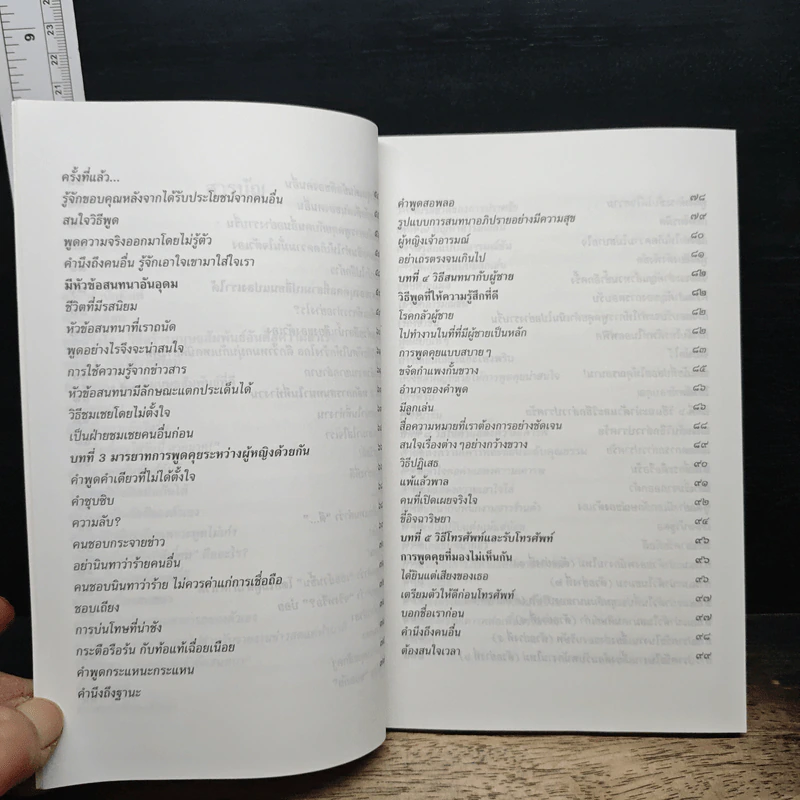 ครั้งที่แล้ว...
รู้จักขอบคุณหลังจากได้รับประโยชน์จากคนอื่น
สนใจวิธีพูด
พูดความจริงออกมาโดยไม่รู้ตัว
คำนึงถึงคนอื่น รู้จักเอาใจเขามาใส่ใจเรา
มีหัวข้อสนทนาอันอุดม
ชีวิตที่มีรสนิยม
หัวข้อสนทนาที่เราถนัด
พูดอย่างไรจึงจะน่าสนใจ
การใช้ความรู้จากข่าวสาร
หัวข้อสนทนามีลักษณะแตกประเด็นได้
วิธีชมเชยโดยไม่ตั้งใจ
เป็นฝ่ายชมเชยคนอื่นก่อน
บทที่ 3 มารยาทการพูดคุยระหว่างผู้หญิงด้วยกัน
คำพูดคำเดียวที่ไม่ได้ตั้งใจ
คำซุบซิบ
ความลับ?
คนชอบกระจายข่าว
อย่านินทาว่าร้ายคนอื่น
คนชอบนินทาว่าร้าย ไม่ควรค่าแก่การเชื่อถือ
ชอบเถียง
การบ่นโทษที่น่าชัง
กระตือรือร้น กับท้อแท้เฉื่อยเนือย
คำพูดกระแหนะกระแหน
คำนึงถึงฐานะ
คำพูดสอพลอ ๗๘
รูปแบบการสนทนาอภิปรายอย่างมีความสุข ๗๙
ผู้หญิงเจ้าอารมณ์ ๘๐
อย่าเถรตรงจนเกินไป ๘๑
บทที่ ๔ วิธีสนทนากับผู้ชาย ๘๒
วิธีพูดที่ให้ความรู้สึกที่ดี ๘๒
โรคกลัวผู้ชาย ๘๒
ไปทำงานในที่ที่มีผู้ชายเป็นหลัก ๘๒
การพูดคุยแบบสบาย ๆ ๘๓
ขจัดกำแพงกั้นขวาง ๘๕
อำนาจของคำพูด ๘๖
มีลูกเล่น ๘๖
สื่อความหมายที่เราต้องการอย่างชัดเจน ๘๘
สนใจเรื่องต่าง ๆอย่างกว้างขวาง ๘๙
วิธีปฏิเสธ ๙๐
แพ้แล้วพาล ๙๑
คนที่เปิดเผยจริงใจ ๙๒
ขี้อิจฉาริษยา ๙๔
บทที่ ๕ วิธีโทรศัพท์และรับโทรศัพท์ ๙๖
การพูดคุยที่มองไม่เห็นกัน ๙๖
ได้ยินแต่เสียงของเธอ ๙๖
เตรียมตัวให้ดีก่อนโทรศัพท์ ๙๗
บอกชื่อเราก่อน ๙๗
คำนึงถึงคนอื่น ๙๘
ต้องสนใจเวลา ๙๙
9
23
22
21